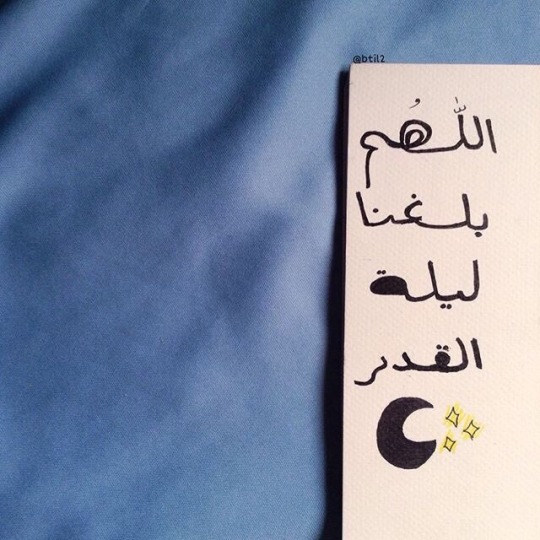 @btil2
اللّٰهُم
بلغنا
ليلة
القدر